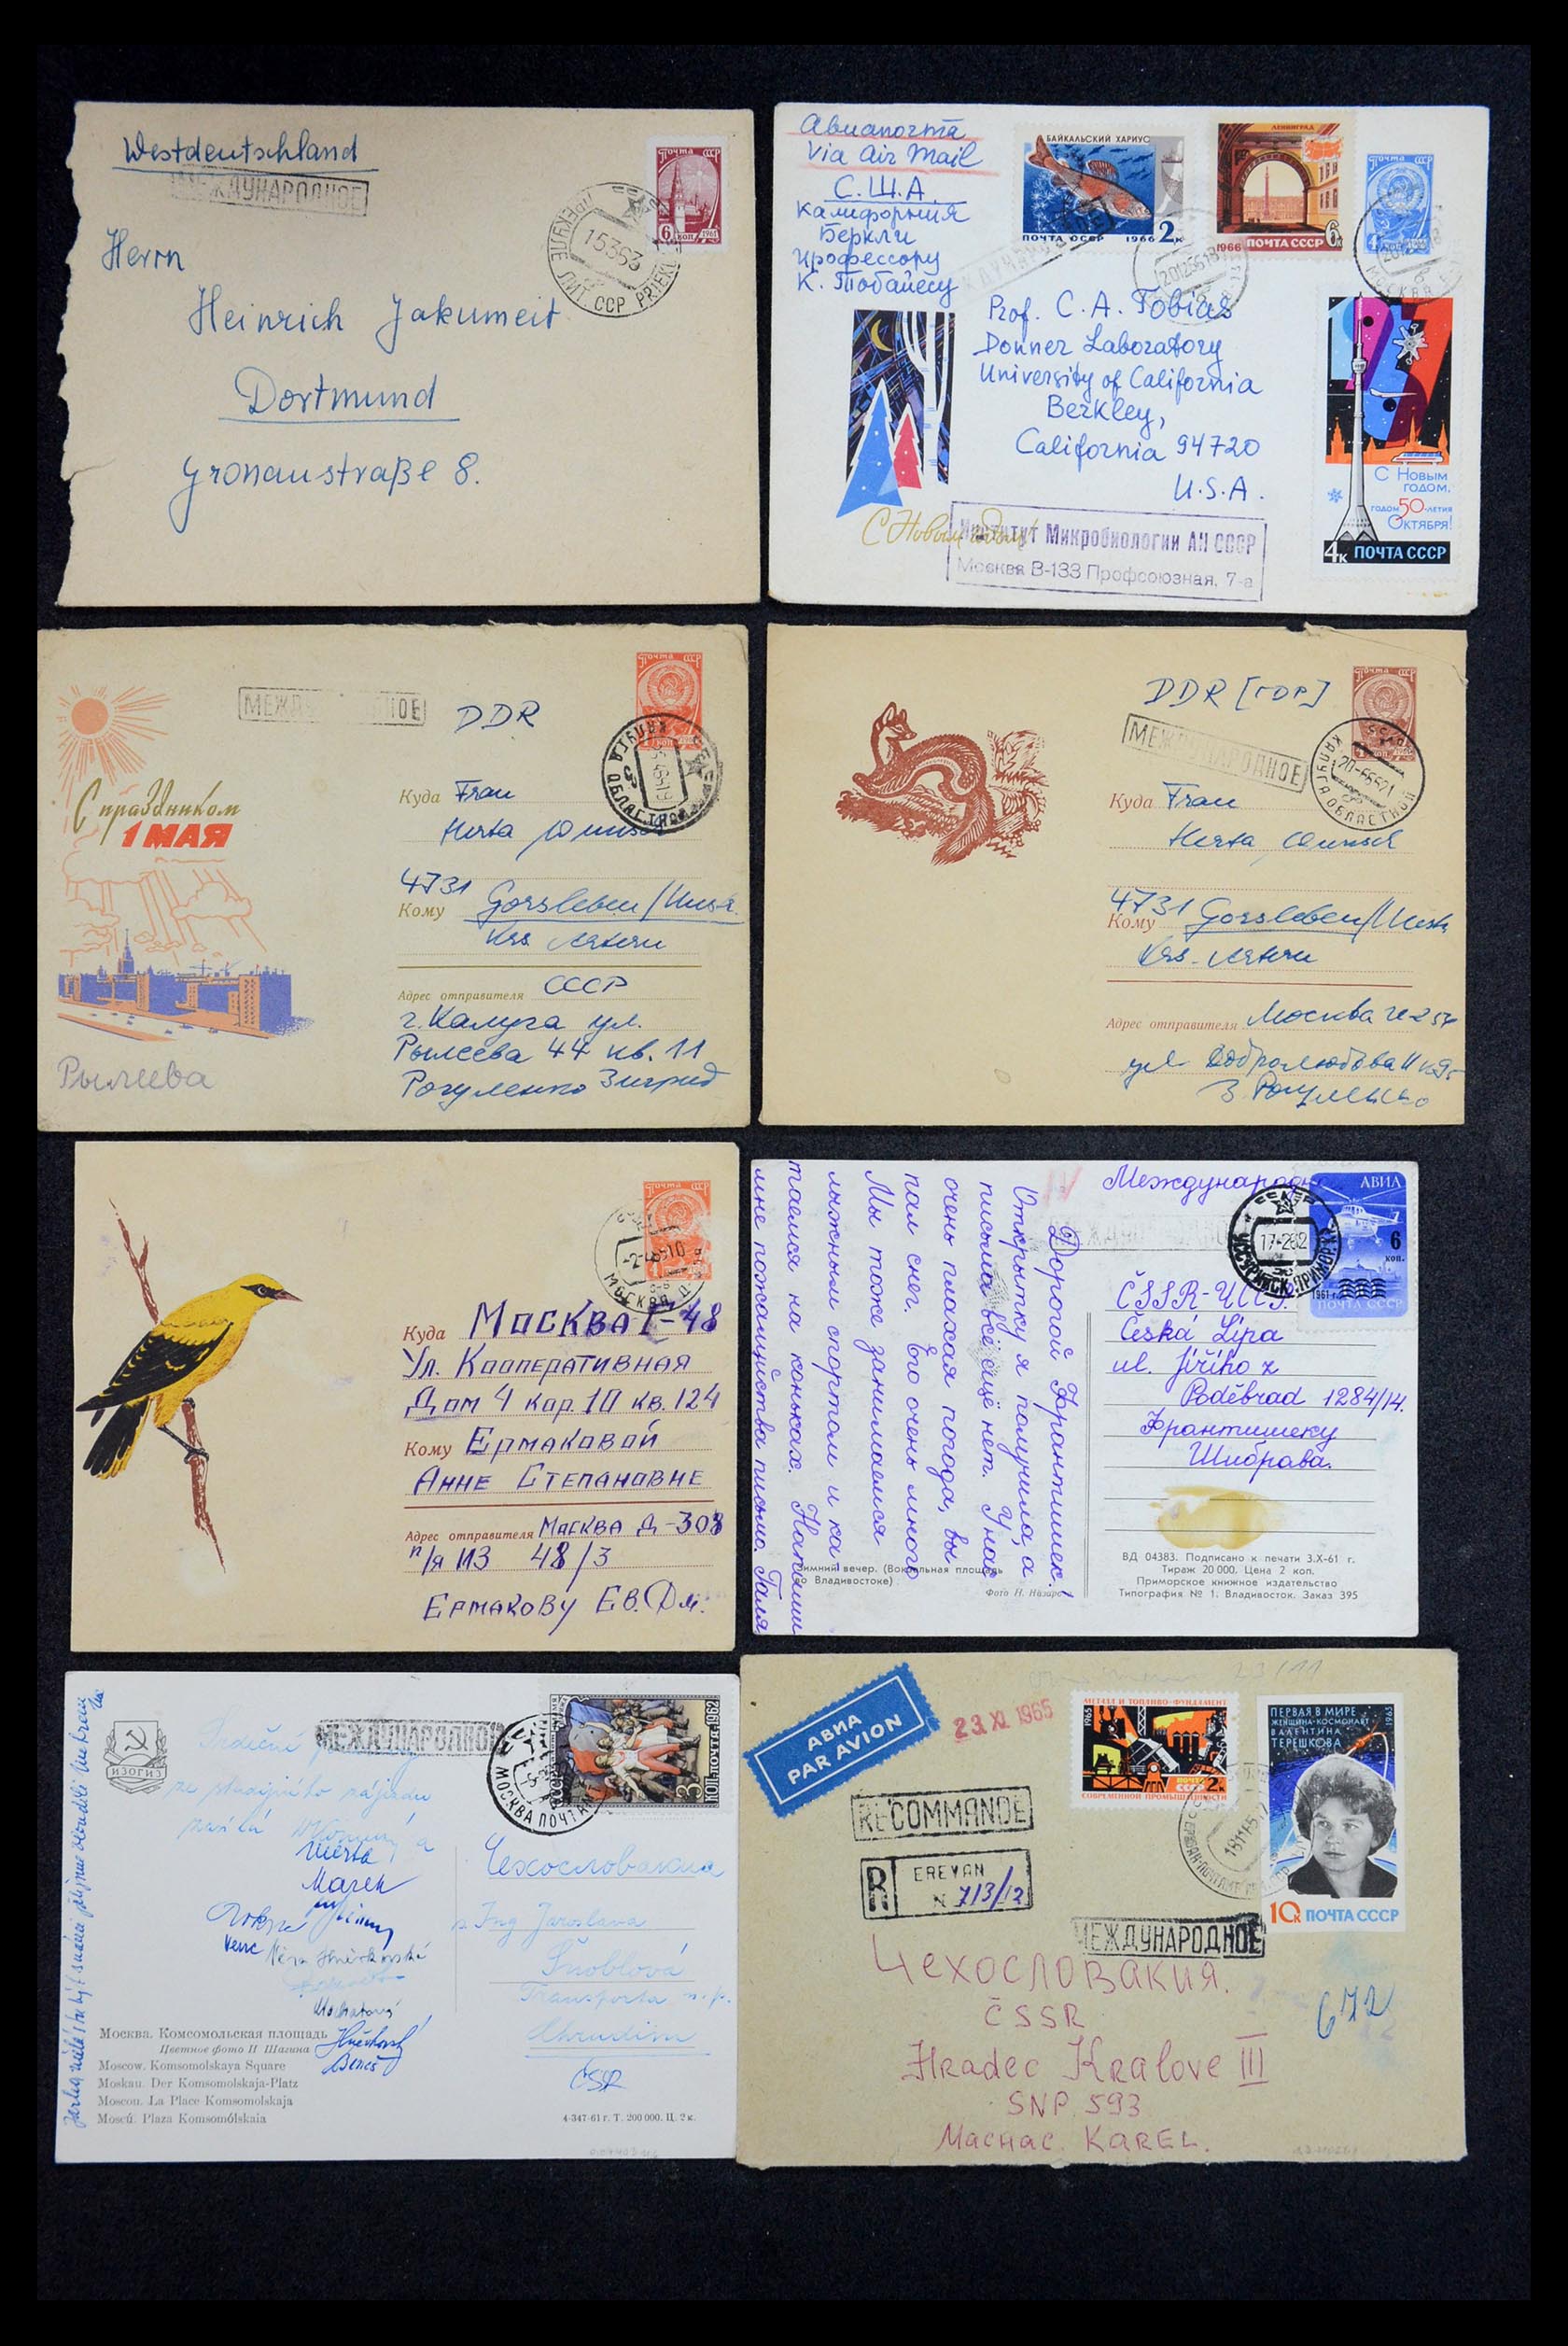 Westdeutschland
МЕЖДУНАРОДНОЕ
ПОЧТА СССР
6 КОП 1961
15363
ЛИТ. ССР PRIEKULE
Herrn
Heinrich Jakumeit
Dortmund
Gronaustraße 8.
Авиапочта
Via Air Mail
С.Ш.А.
Калифорния
Беркли
Профессору
К. Тобайесу
БАЙКАЛЬСКИЙ ХАРИУС
ПОЧТА СССР 1966 2к
ЛЕНИНГРАД
1966 ПОЧТА СССР 6к
ПОЧТА СССР
МОСКВА
Prof. C. A. Tobias
Donner Laboratory
University of California
Berkley,
California 94720
U.S.A.
С Новым
годом,
годом 50-летия
Октября!
4к ПОЧТА СССР
С Новым годом!
Институт Микробиологии АН СССР
Москва В-133 Профсоюзная, 7-а
МЕЖДУНАРОДНОЕ
DDR
ПОЧТА СССР
КАЛУГА ОБЛАСТНОЙ
С праздником
1 МАЯ
Куда Frau
Herta
4731
Кому Gorsleben/Unstr.
Krs. Artern
Адрес отправителя СССР
г. Калуга ул.
Рылеева 44 кв. 11
Рогуленко Зигрид
Рылеева
DDR [ГДР]
МЕЖДУНАРОДНОЕ
ПОЧТА СССР
КАЛУГА ОБЛАСТНОЙ
Куда Frau
Herta
4731 Gorsleben/Unstr
Кому
Krs. Artern
Адрес отправителя Москва
ул Добролюбова 11
З. Рогуленко
ПОЧТА СССР
МОСКВА
Куда МОСКВА Г-48
Ул. КООПЕРАТИВНАЯ
Дом 4 кор. 10 кв. 124
Кому ЕРМАКОВОЙ
АННЕ СТЕПАНОВНЕ
Адрес отправителя МОСКВА Д-308
п/я ИЗ 48/3
ЕРМАКОВУ ЕВ. Дм.
Дорогой Франтишек!
Открытку я получила, а
письма всё ещё нет. У нас
очень плохая погода, вы
пал снег. Его очень много
Мы тоже занимаемся
лыжным спортом и ка
таемся на коньках. Напиши
мне пожалуйста письмо. Галя
Международн
АВИА
6 коп.
1961 г.
ПОЧТА СССР
17-262
УССУРИЙСК ПРИМОР
ČSSR-ЧССР
Česká Lípa
ul. Jiřího z
Poděbrad 1284/14.
Франтишеку
Шибрава.
Зимний вечер. (Вокзальная площадь
во Владивостоке)
Фото Н. Назаро
ВД 04383. Подписано к печати 3.X-61 г.
Тираж 20 000. Цена 2 коп.
Приморское книжное издательство
Типография № 1. Владивосток. Заказ 395
ИЗОГИЗ
МЕЖДУНАРОДНОЕ
3 КОП. ПОЧТА 1962
МОСКВА ПОЧТА
Srdečné
ze
zájezdu
Marek
Věra
Hněvkovský
Beneš
Чехословакия
Ing Jaroslava
Šnoblová
Transporta n.p.
Chrudim
ČSR
Москва. Комсомольская площадь
Цветное фото Н Шагина
Moscow. Komsomolskaya Square
Moskau. Der Komsomolskaja-Platz
Moscou. La Place Komsomolskaja
Moscú. Plaza Komsomólskaia
4-347-61 г. Т. 200 000. Ц. 2 к.
23/11
АВИА
PAR AVION
23 XI 1965
RECOMMANDE
R EREVAN
N 713/12
МЕТАЛЛ И ТОПЛИВО-ФУНДАМЕНТ
1965
ПОЧТА СССР 2к
СОВРЕМЕННОЙ ПРОМЫШЛЕННОСТИ
ПЕРВАЯ В МИРЕ
ЖЕНЩИНА-КОСМОНАВТ
ВАЛЕНТИНА
ТЕРЕШКОВА
1963 1965
10к ПОЧТА СССР
МЕЖДУНАРОДНОЕ
ЧЕХОСЛОВАКИЯ.
ČSSR
Hradec Kralove III
SNP 593
Маснас. KAREL.
672